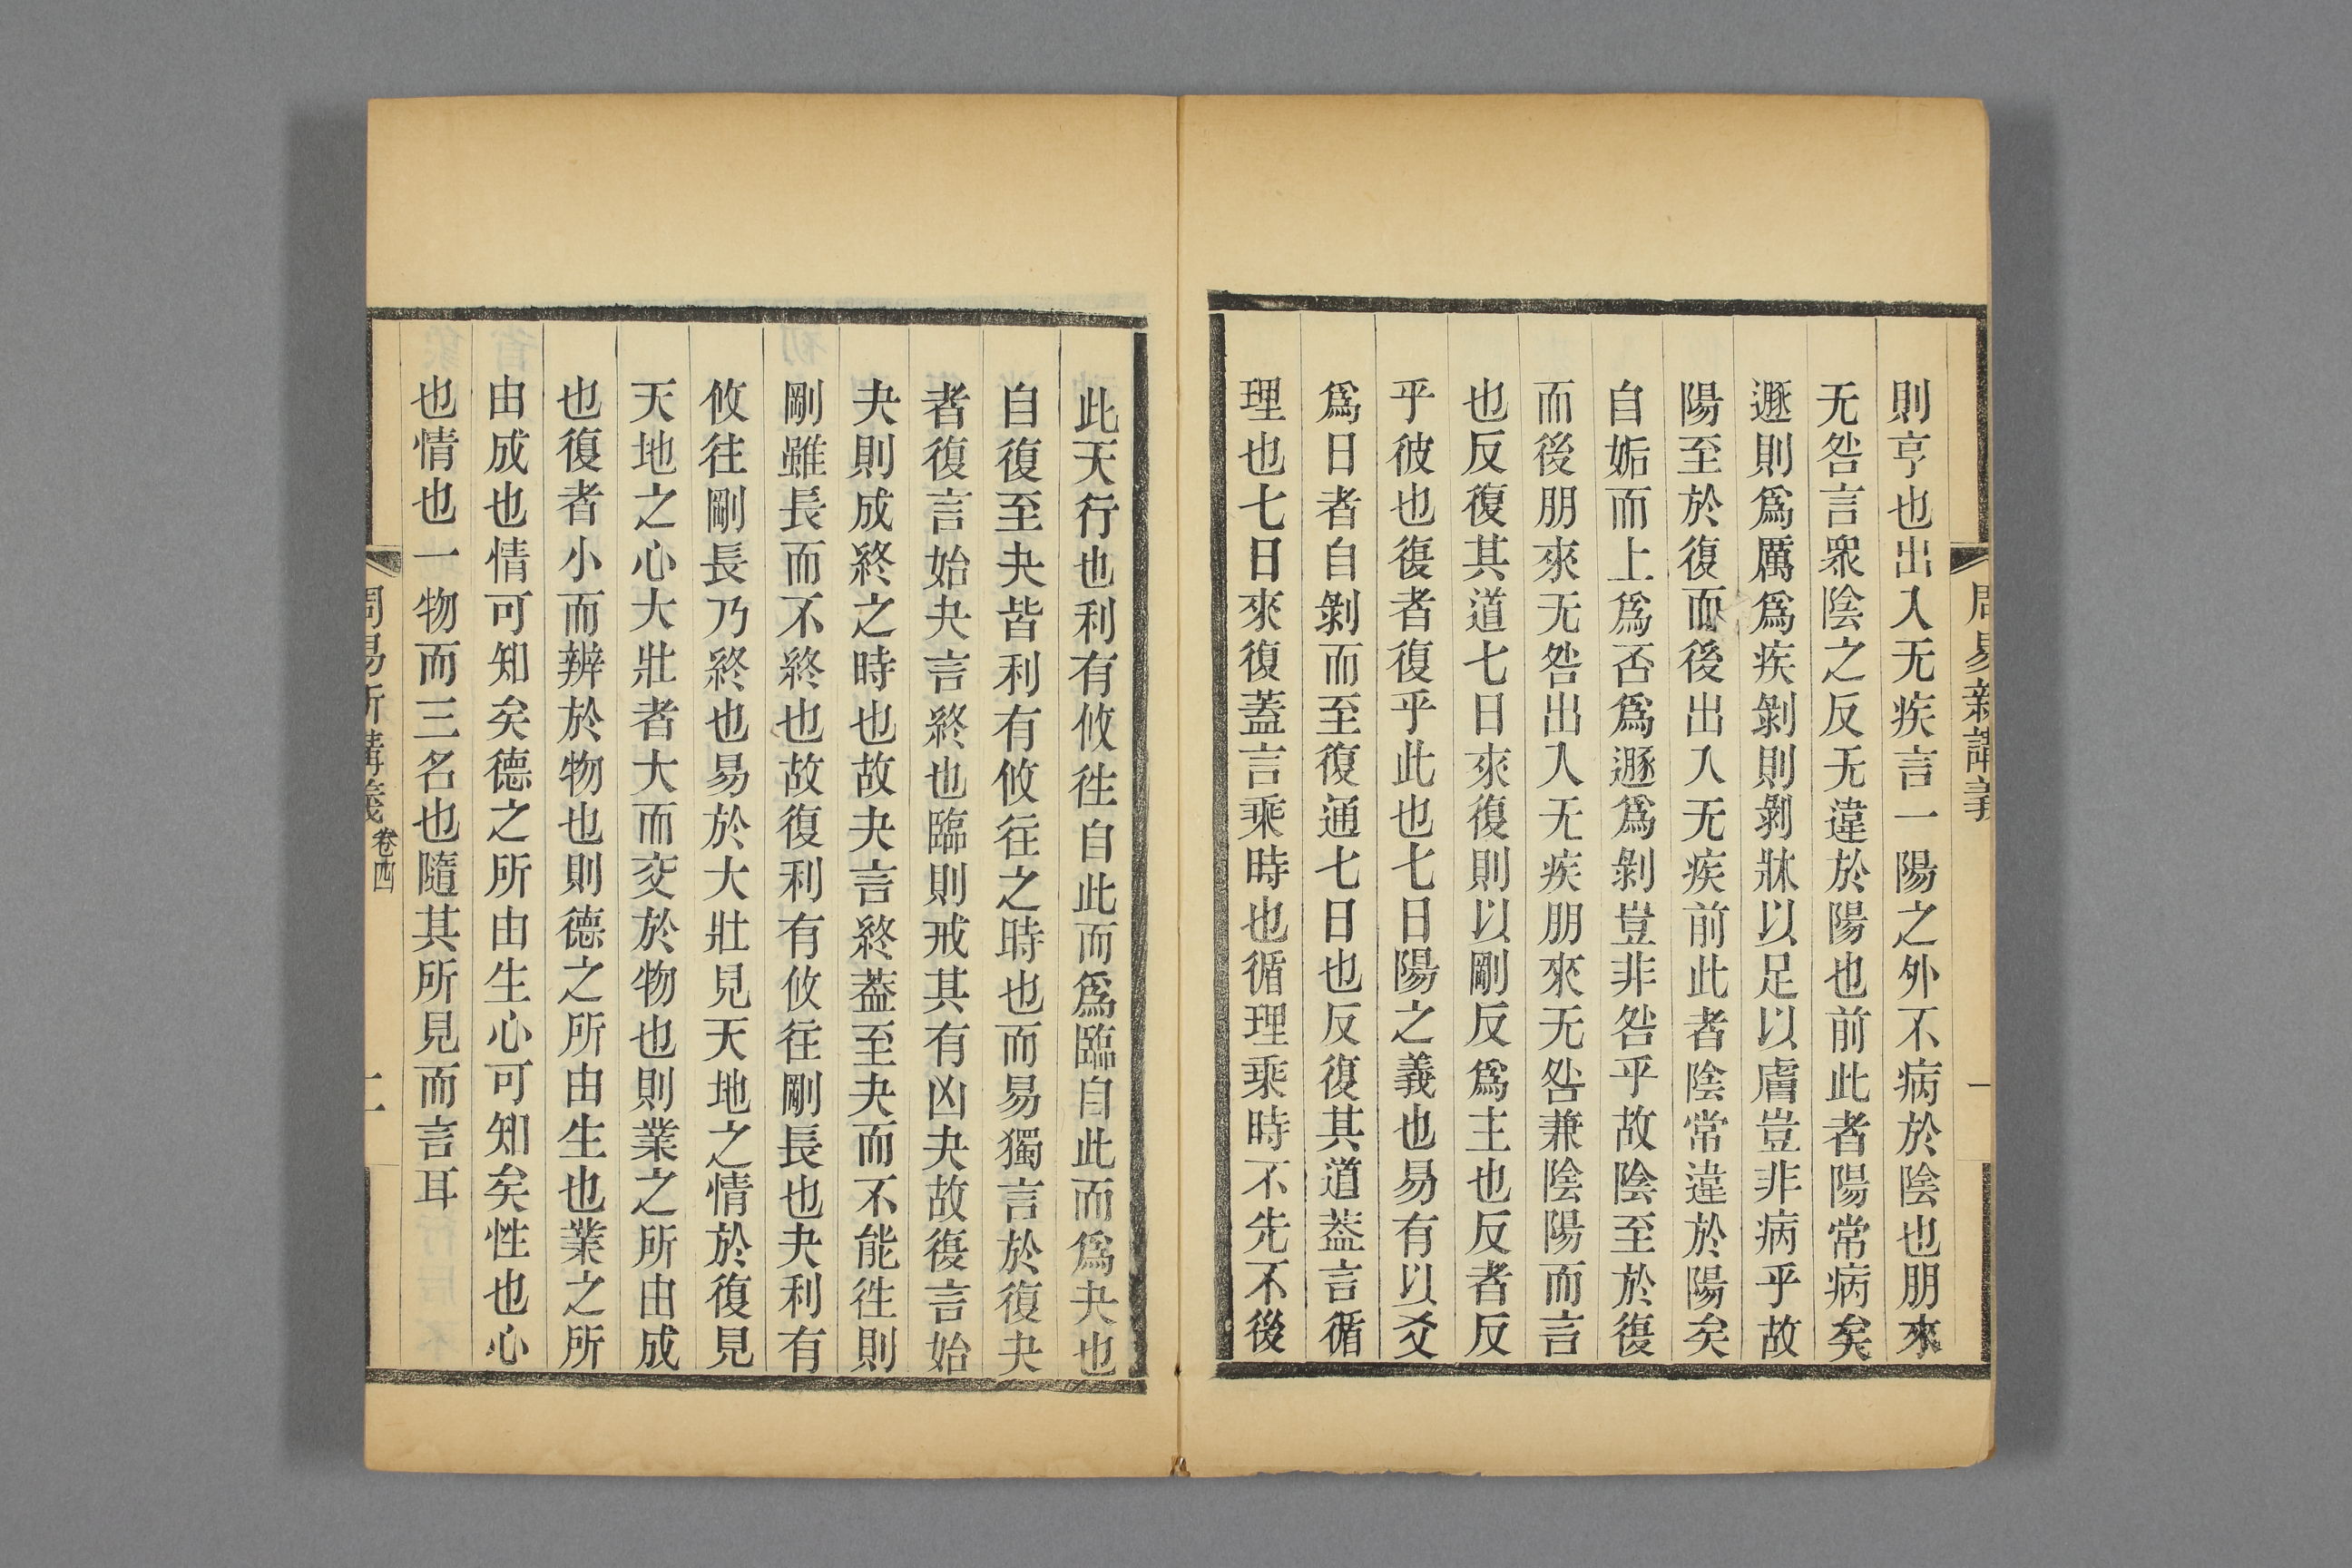 周易新講義
一
則亨也出入无疾言一陽之外不病於陰也朋來
无咎言衆陰之反无違於陽也前此者陽常病矣
遯則爲厲爲疾剝則剝牀以足以膚豈非病乎故
陽至於復而後出入无疾前此者陰常違於陽矣
自姤而上爲否爲遯爲剝豈非咎乎故陰至於復
而後朋來无咎出入无疾朋來无咎兼陰陽而言
也反復其道七日來復則以剛反爲主也反者反
乎彼也復者復乎此也七日陽之義也易有以爻
爲日者自剝而至復通七日也反復其道葢言循
理也七日來復蓋言乘時也循理乘時不先不後
此天行也利有攸徃自此而爲臨自此而爲夬也
自復至夬皆利有攸往之時也而易獨言於復夬
者復言始夬言終也臨則戒其有凶夬故復言始
夬則成終之時也故夬言終葢至夬而不能徃則
剛雖長而不終也故復利有攸往剛長也夬利有
攸往剛長乃終也易於大壯見天地之情於復見
天地之心大壯者大而交於物也則業之所由成
也復者小而辨於物也則德之所由生也業之所
由成也情可知矣德之所由生心可知矣性也心
也情也一物而三名也隨其所見而言耳
周易新講義 卷四
二